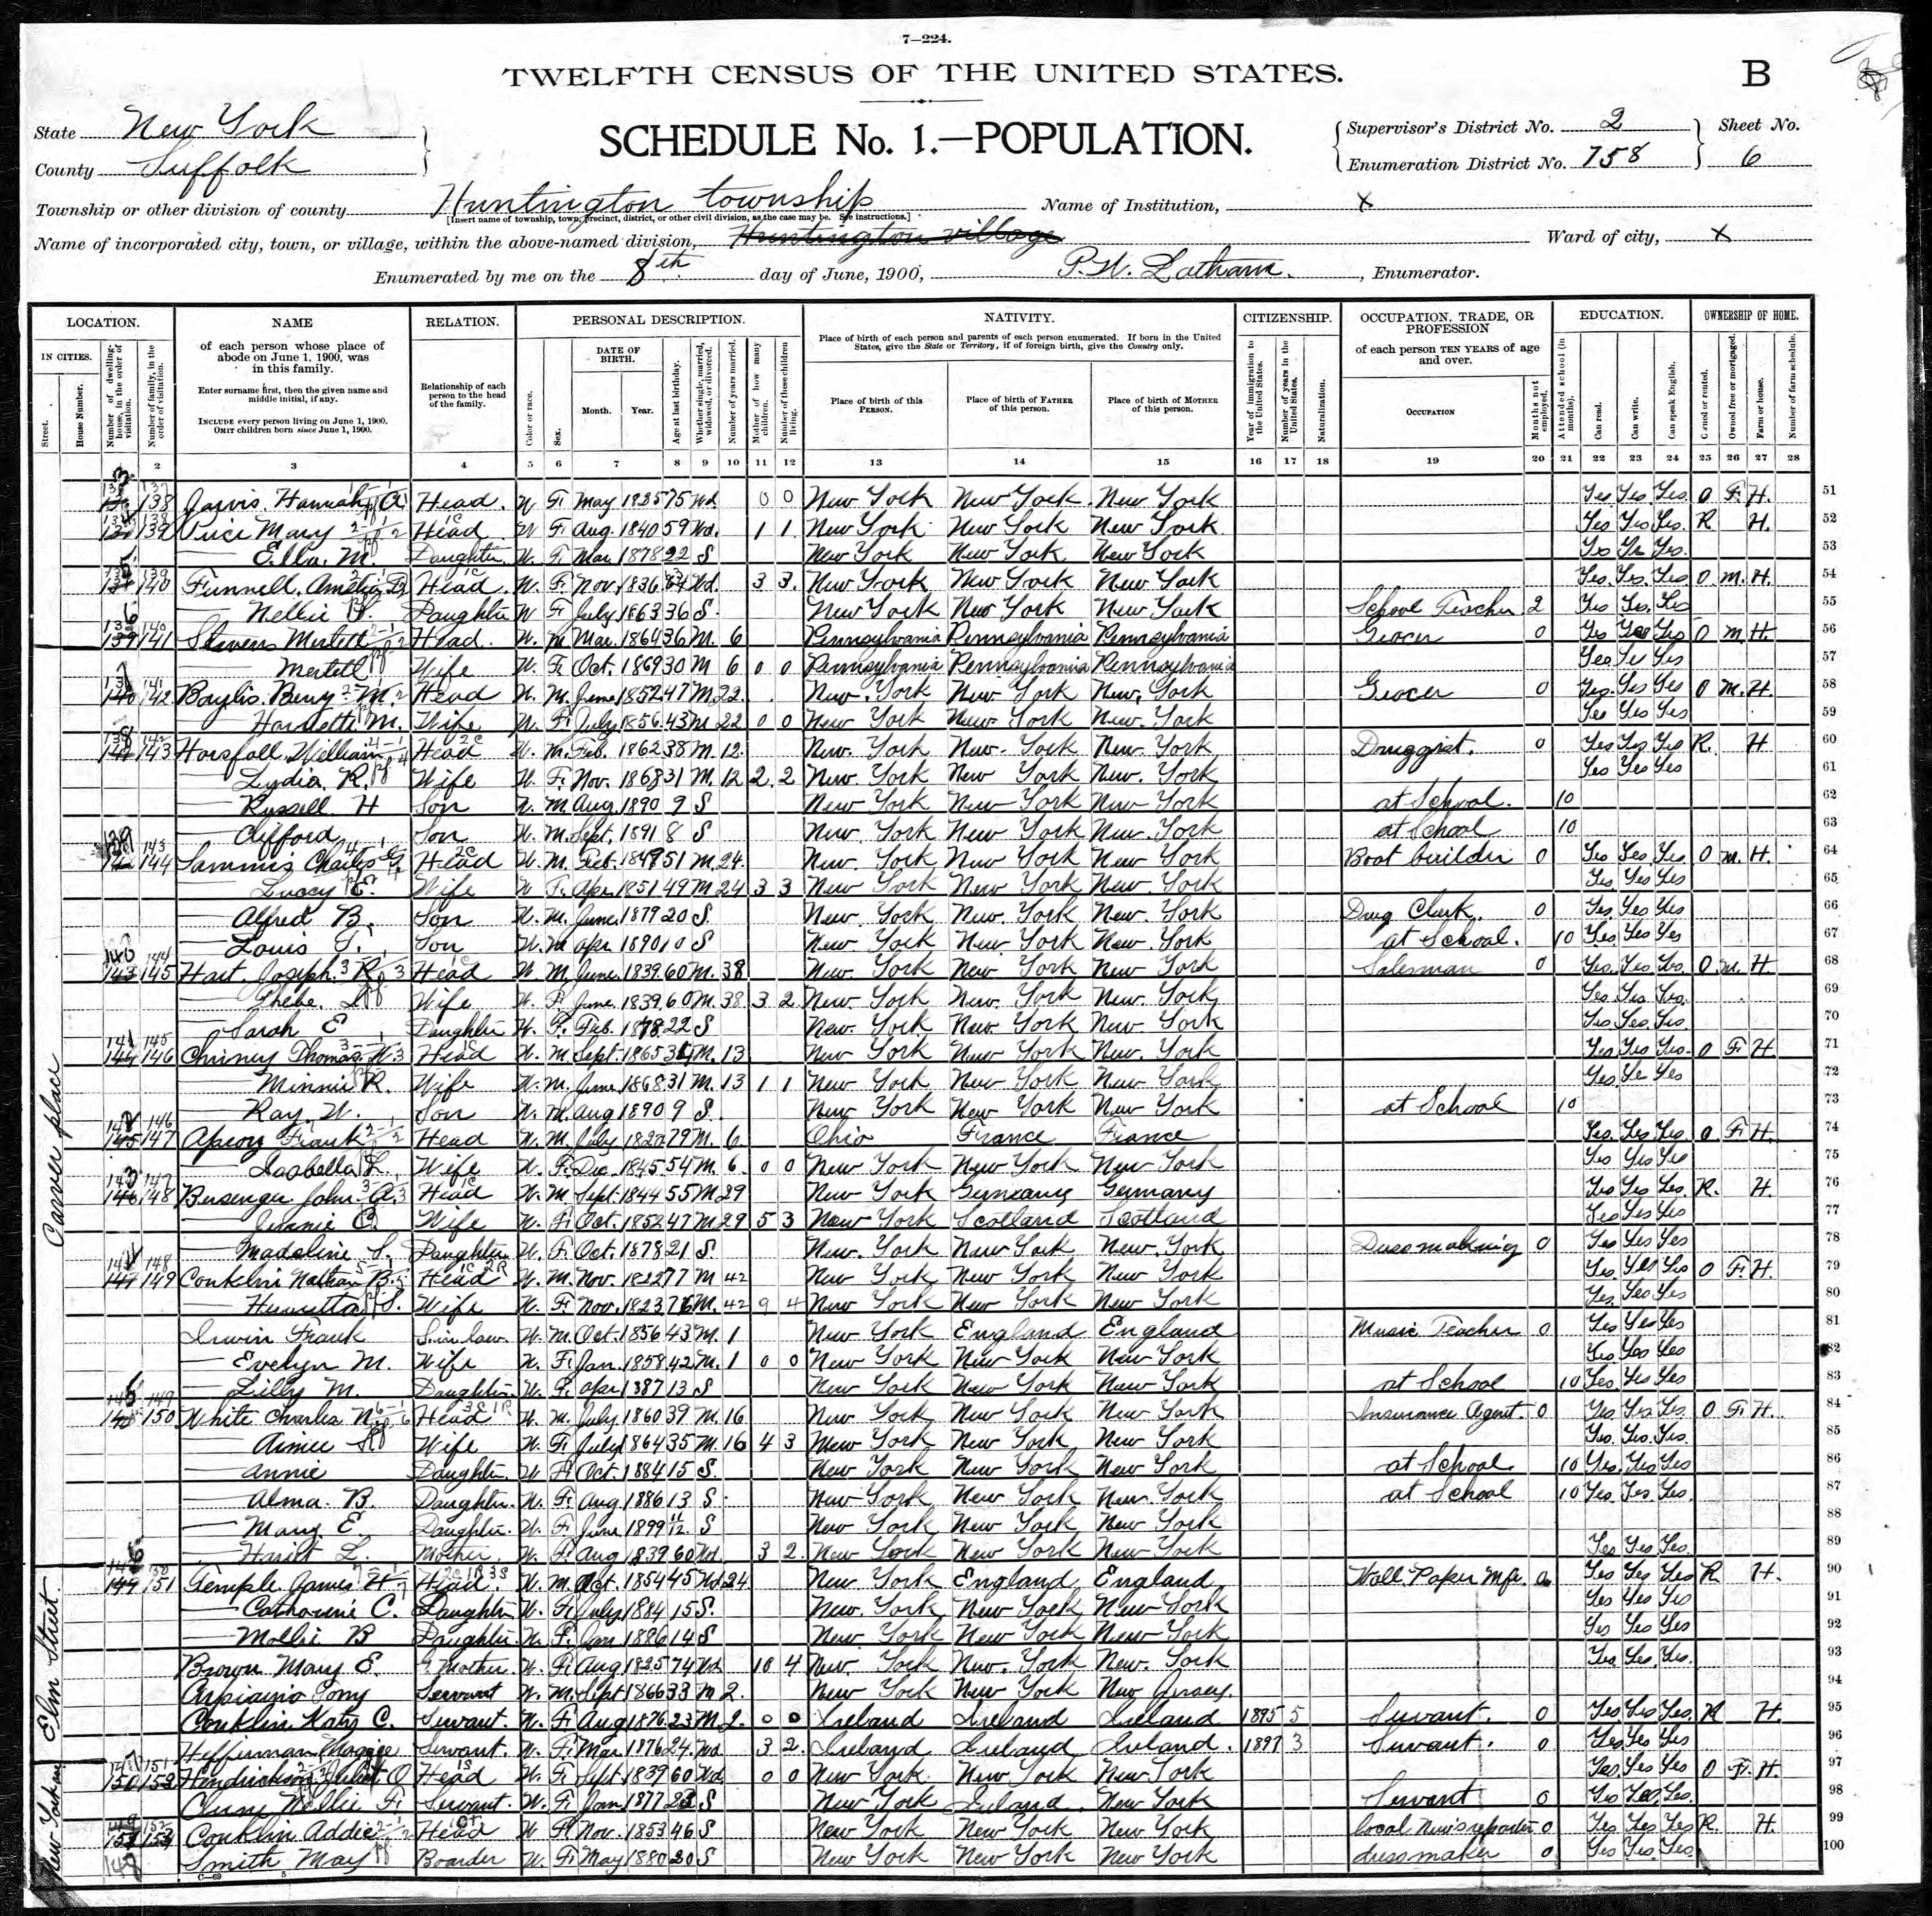 7—224.
TWELFTH CENSUS OF THE UNITED STATES.
B
State New York
County Suffolk
SCHEDULE No. 1.—POPULATION.
Supervisor's District No. 2
Enumeration District No. 758
Sheet No.
6
Township or other division of county Huntington township
[Insert name of township, town, precinct, district, or other civil division, as the case may be. See instructions.]
Name of Institution, X
Name of incorporated city, town, or village, within the above-named division, Huntington village
Ward of city, X
Enumerated by me on the 8th day of June, 1900, P. W. Latham, Enumerator.
LOCATION.
IN CITIES.
Street.
House Number.
Number of dwelling-house, in the order of visitation.
Number of family, in the order of visitation.
NAME
of each person whose place of abode on June 1, 1900, was in this family.
Enter surname first, then the given name and middle initial, if any.
INCLUDE every person living on June 1, 1900.
OMIT children born since June 1, 1900.
RELATION.
Relationship of each person to the head of the family.
PERSONAL DESCRIPTION.
Color or race.
Sex.
DATE OF BIRTH.
Month.
Year.
Age at last birthday.
Whether single, married, widowed, or divorced.
Number of years married.
Mother of how many children.
Number of these children living.
NATIVITY.
Place of birth of each person and parents of each person enumerated. If born in the United States, give the State or Territory, if of foreign birth, give the Country only.
Place of birth of this PERSON.
Place of birth of FATHER of this person.
Place of birth of MOTHER of this person.
CITIZENSHIP.
Year of immigration to the United States.
Number of years in the United States.
Naturalization.
OCCUPATION, TRADE, OR PROFESSION
of each person TEN YEARS of age and over.
OCCUPATION
Months not employed.
EDUCATION.
Attended school (in months).
Can read.
Can write.
Can speak English.
OWNERSHIP OF HOME.
Owned or rented.
Owned free or mortgaged.
Farm or house.
Number of farm schedule.
2 3 4 5 6 7 8 9 10 11 12 13 14 15 16 17 18 19 20 21 22 23 24 25 26 27 28
138 Jarvis Hannah A Head W F May 1825 75 Wd 0 0 New York New York New York Yes Yes Yes O F H 51
139 Price Mary Head W F Aug 1840 59 Wd 1 1 New York New York New York Yes Yes Yes R H 52
— Ella M. Daughter W F Mar 1878 22 S New York New York New York Yes Yes Yes 53
140 Funnell Head W F Nov 1836 Wd 3 3 New York New York New York Yes Yes Yes O M H 54
— Nellie Daughter W F July 1863 36 S New York New York New York School Teacher 2 Yes Yes Yes 55
139 141 Stevens Head W M Mar 1864 36 M 6 Pennsylvania Pennsylvania Pennsylvania Grocer 0 Yes Yes Yes O M H 56
— Wife W F Oct 1869 30 M 6 0 0 Pennsylvania Pennsylvania Pennsylvania Yes Yes Yes 57
140 142 Baylis M Head W M June 1852 47 M 22 New York New York New York Grocer 0 Yes Yes Yes O M H 58
— M. Wife W F July 1856 43 M 22 0 0 New York New York New York Yes Yes Yes 59
141 143 Horsfall William Head W M Feb 1862 38 M 12 New York New York New York Druggist 0 Yes Yes Yes R H 60
— Lydia R. Wife W F Nov 1868 31 M 12 2 2 New York New York New York Yes Yes Yes 61
— Russell H Son W M Aug 1890 9 S New York New York New York at School 10 62
— Clifford Son W M Sept 1891 8 S New York New York New York at School 10 63
142 144 Sammis Charles G Head W M 51 M 24 New York New York New York Boat builder 0 Yes Yes Yes O M H 64
— E. Wife W F Apr 1851 49 M 24 3 3 New York New York New York Yes Yes Yes 65
— Alfred B. Son W M June 1879 20 S New York New York New York Drug Clerk 0 Yes Yes Yes 66
— Louis Son W M Apr 1890 10 S New York New York New York at School 10 Yes Yes Yes 67
143 145 Hart Joseph R Head W M June 1839 60 M 38 New York New York New York Salesman 0 Yes Yes Yes O M H 68
— Phebe Wife W F June 1839 60 M 38 3 2 New York New York New York Yes Yes Yes 69
— Sarah E Daughter W F Feb 1878 22 S New York New York New York Yes Yes Yes 70
144 146 Thomas W Head W M Sept 1865 34 M 13 New York New York New York Yes Yes Yes O F H 71
— Minnie R. Wife W M June 1868 31 M 13 1 1 New York New York New York Yes Yes Yes 72
— Ray W. Son W M Aug 1890 9 S New York New York New York at School 10 73
145 147 Frank Head W M July 79 M 6 Ohio France France Yes Yes Yes O F H 74
— Isabella L. Wife W F Dec 1845 54 M 6 0 0 New York New York New York Yes Yes Yes 75
146 148 John A Head W M Sept 1844 55 M 29 New York Germany Germany Yes Yes Yes R H 76
— Jennie Wife W F Oct 1852 47 M 29 5 3 New York Scotland Scotland Yes Yes Yes 77
— Madeline S. Daughter W F Oct 1878 21 S New York New York New York Dressmaking 0 Yes Yes Yes 78
147 149 Conklin Nathan B. Head W M Nov 1822 77 M 42 New York New York New York Yes Yes Yes O F H 79
— Henrietta S. Wife W F Nov 1823 76 M 42 9 4 New York New York New York Yes Yes Yes 80
Irwin Frank S. in law W M Oct 1856 43 M 1 New York England England Music Teacher 0 Yes Yes Yes 81
— Evelyn M. Wife W F Jan 1858 42 M 1 0 0 New York New York New York Yes Yes Yes 82
— Lilly M. Daughter W F Apr 1887 13 S New York New York New York at School 10 Yes Yes Yes 83
150 White Charles N Head W M July 1860 39 M 16 New York New York New York Insurance Agent 0 Yes Yes Yes O F H 84
— Aimee Wife W F July 1864 35 M 16 4 3 New York New York New York Yes Yes Yes 85
— Annie Daughter W F Oct 1884 15 S New York New York New York at School 10 Yes Yes Yes 86
— Alma B. Daughter W F Aug 1886 13 S New York New York New York at School 10 Yes Yes Yes 87
— Mary E. Daughter W F June 1899 11/12 S New York New York New York 88
— L. Mother W F Aug 1839 60 Wd 3 2 New York New York New York Yes Yes Yes 89
151 Temple James H Head W M Oct 1854 45 Wd 24 New York England England Wall Paper Mfr. Yes Yes Yes R H 90
— Catharine C. Daughter W F July 1884 15 S New York New York New York Yes Yes Yes 91
— Mollie B Daughter W F Jan 1886 14 S New York New York New York Yes Yes Yes 92
Brown Mary E. G. Mother W F Aug 1825 74 Wd 10 4 New York New York New York Yes Yes Yes 93
Tony Servant W M Sept 1866 33 M 2 New York New York New Jersey 94
Conklin Katy C. Servant W F Aug 1876 23 M 2 0 0 Ireland Ireland Ireland 1895 5 Servant 0 Yes Yes Yes R H 95
Heffernan Maggie Servant W F Mar 1876 24 Wd 3 2 Ireland Ireland Ireland 1897 3 Servant 0 Yes Yes Yes 96
150 152 Hendrickson O Head W F Sept 1839 60 Wd 0 0 New York New York New York Yes Yes Yes O F H 97
Nellie F. Servant W F Jan 1877 23 S New York Ireland New York Servant 0 Yes Yes Yes 98
153 Conklin Addie Head W F Nov 1853 46 S New York New York New York local News reporter 0 Yes Yes Yes R H 99
Smith May Boarder W F May 1880 20 S New York New York New York dressmaker 0 Yes Yes Yes 100
Carver place
Elm Street
New York ave
C—69